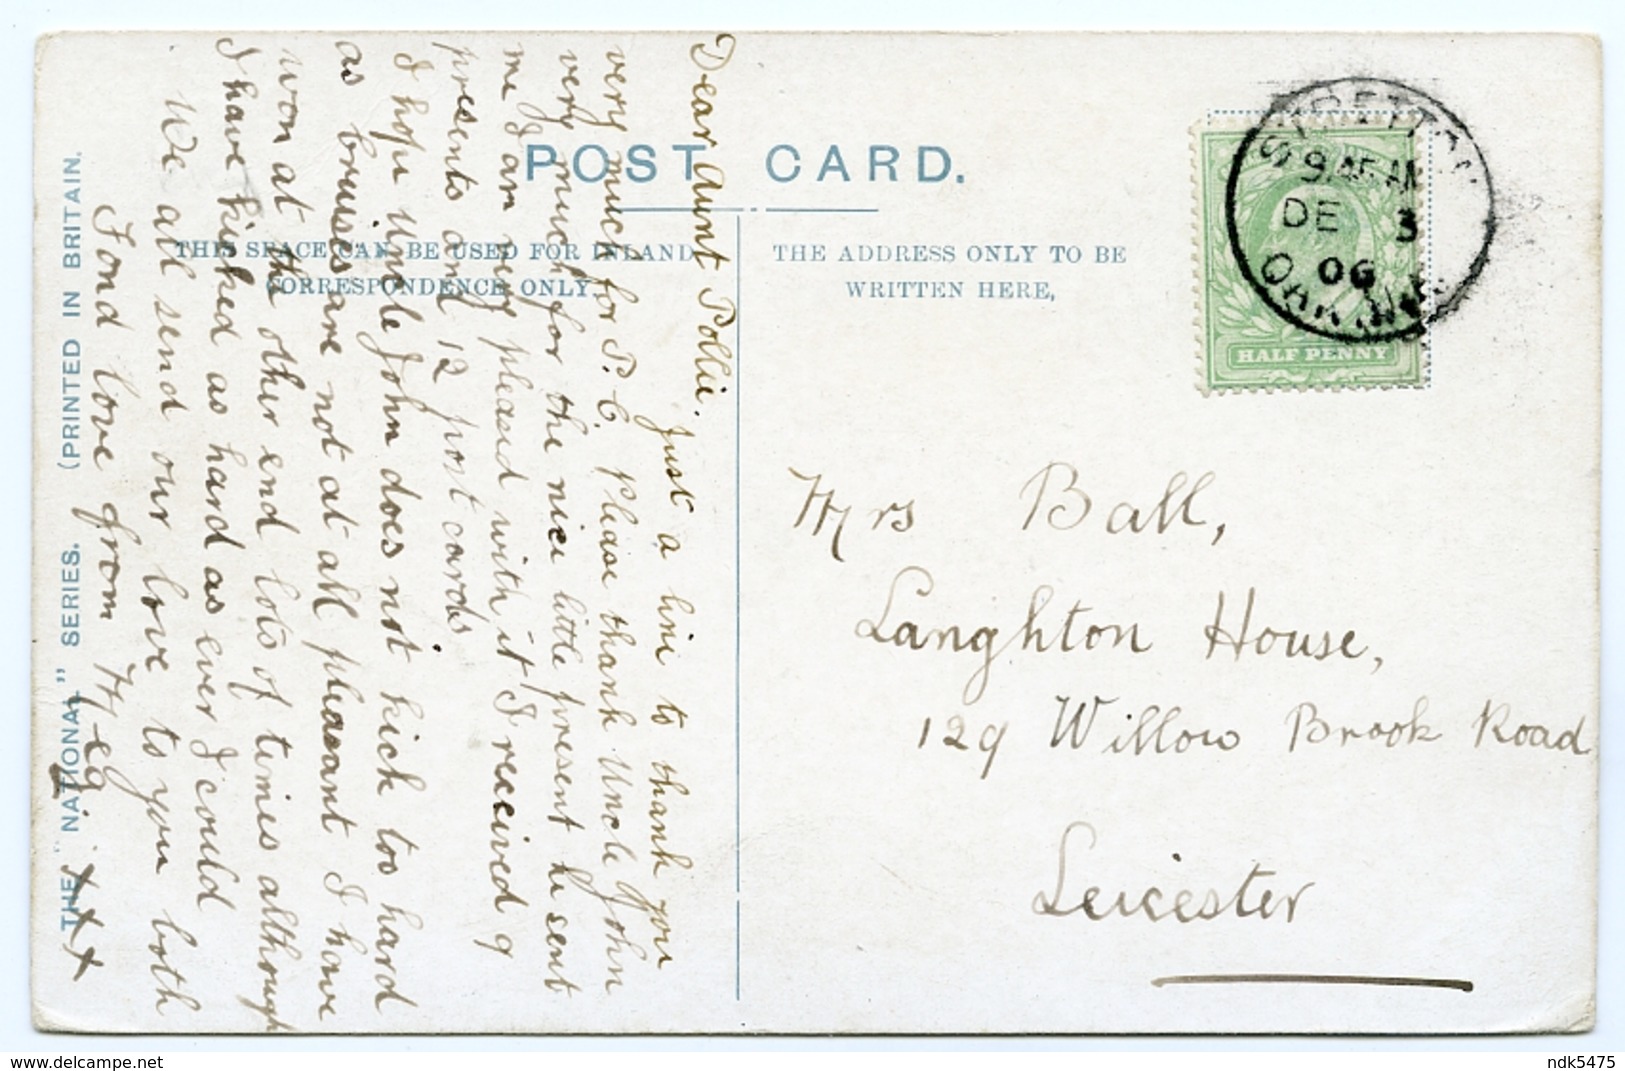 POST CARD.
THIS SPACE CAN BE USED FOR INLAND
CORRESPONDENCE ONLY.
THE ADDRESS ONLY TO BE
WRITTEN HERE,
THE "NATIONAL" SERIES. (PRINTED IN BRITAIN.
Dear Aunt Pollie.
Just a line to thank you
very much for P.C. Please thank Uncle John
very much for the nice little present he sent
me I am very pleased with it I received 9
presents and 12 post cards
I hope Uncle John does not kick too hard
as bruises are not at all pleasant I have
won at the other end lots of times although
I have kicked as hard as ever I could
We all send our love to you both
Fond love from Meg.
xxx
Mrs Ball,
Langhton House,
129 Willow Brook Road
Leicester
STRETTON
9.45 AM
DE 3
06
OAKHAM
HALF PENNY
www.delcampe.net
ndk5475